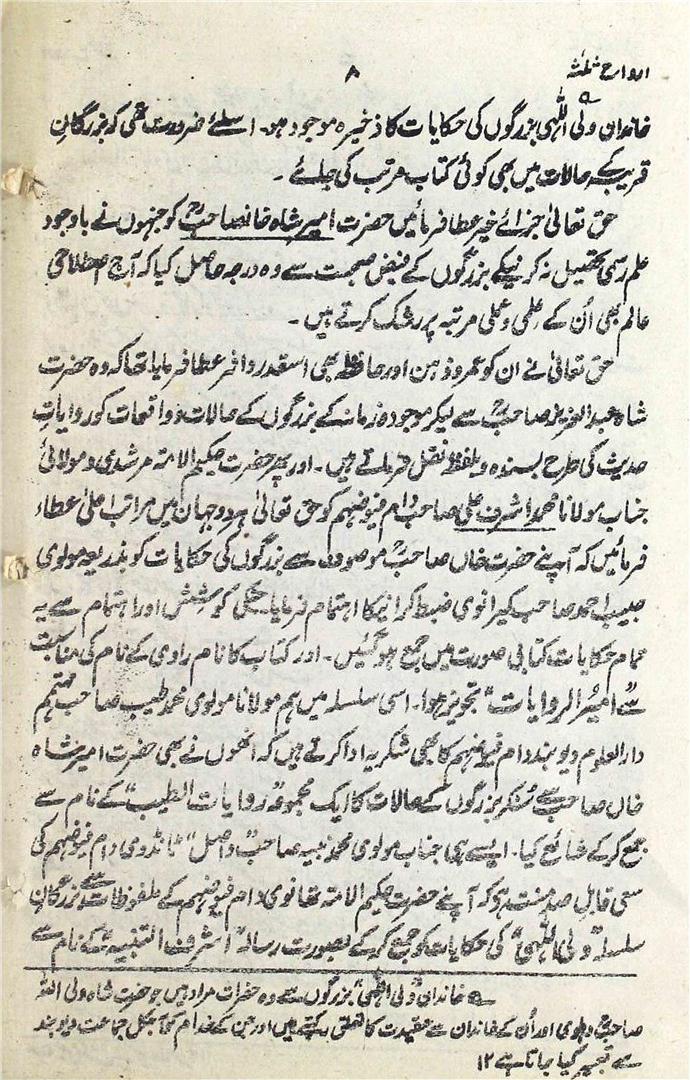 ارواح ثلٰثہ
۸
خاندان ولی اللّٰہی بزرگوں کی حکایات کا ذخیرہ موجود ہو۔ اسلئے ضرورت تھی کہ بزرگانِ
قریب کے حالات میں بھی کوئی کتاب مرتب کی جائے۔
حق تعالیٰ جزائے خیر عطا فرمائیں حضرت امیر شاہ خانصاحبؒ کو جنہوں نے باوجود
علم رسمی تحصیل نہ کرنیکے بزرگوں کے فیض صحبت سے وہ درجہ حاصل کیا کہ آج اصطلاحی
عالم بھی اُن کے علمی و عملی مرتبہ پر رشک کرتے ہیں۔
حق تعالیٰ نے ان کو عمر و ذہن اور حافظہ بھی اسقدر وافر عطا فرمایا تھا کہ وہ حضرت
شاہ عبدالعزیز صاحبؒ سے لیکر موجودہ زمانہ کے بزرگوں کے حالات و واقعات کو روایاتِ
حدیث کی طرح بسندہ و بلفظہ نقل فرماتے ہیں۔ اور پھر حضرت حکیم الامۃ مرشدی و مولائی
جناب مولانا محمد اشرف علی صاحب دام فیوضہم کو حق تعالیٰ ہر دو جہان میں مراتب اعلیٰ عطاء
فرمائیں کہ آپنے حضرت خاں صاحبؒ موصوف سے بزرگوں کی حکایات کو بذریعہ مولوی
حبیب احمد صاحب کیرانوی ضبط کرانیکا اہتمام فرمایا جنکی کوشش اور اہتمام سے یہ
تمام حکایات کتابی صورت میں جمع ہوگئیں۔ اور کتاب کا نام راوی کے نام کی مناسبت
سے "امیر الروایات" تجویز ہوا۔ اسی سلسلہ میں ہم مولانا مولوی محمد طیب صاحب مہتمم
دار العلوم دیوبند دام فیوضہم کا بھی شکریہ ادا کرتے ہیں کہ انھوں نے بھی حضرت امیر شاہ
خاں صاحبؒ سے سُنکر بزرگوں کے حالات کا ایک مجموعہ "روایات الطیب" کے نام سے
جمع کرکے شائع کیا۔ ایسے ہی جناب مولوی محمد نبیہ صاحب "واصل" ٹانڈوی دام فیوضہم کی
سعی قابلِ صد منت ہو کہ آپنے حضرت حکیم الامۃ تھانوی دام فیوضہم کے ملفوظات سے بزرگانِ
سلسلہ "ولی اللّٰہی" کی حکایات کو جمع کرکے بصورت رسالہ "اشرف التنبیہ" کے نام سے
؎ خاندان "ولی اللّٰہی" بزرگوں سے وہ حضرات مراد ہیں جو حضرت شاہ ولی اللہ
صاحبؒ دہلوی اور اُن کے خاندان سے عقیدت کا تعلق رکھتے ہیں اور جن کے خدام کو آجکل جماعت دیوبند
سے تعبیر کیا جاتا ہے ۱۲